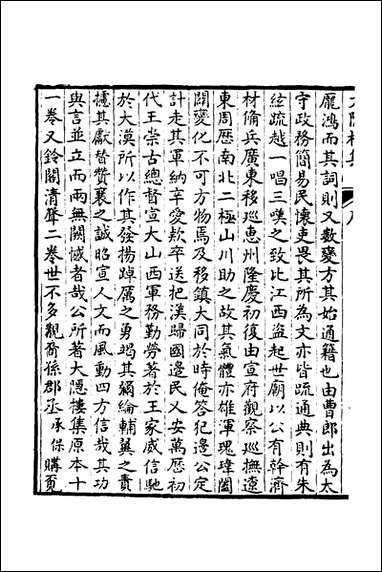 龎鴻而其詞則又數嬖方其始通籍也由曹郎出為太
守政務簡易民懷吏畏其所為文亦皆疏通典則有朱
絃疏越一唱三嘆之致比江西盗起世廟以公有幹濟
材備兵廣東移巡惠州隆慶初復由宣府觀察巡撫遼
東周歴南北二極山川助之故其氣體亦雄渾瑰瑋闔
闢變化不可方物焉及移鎮大同於時俺答犯邊公定
計走其軍納辛愛欵卒送把漢歸國邊民乂安萬歴初
代王崇古總督宣大山西軍務勤勞著於王家威信馳
於大漠所以作其發揚踔厲之勇竭其彌綸輔翼之責
攄其獻替贊襄之誠昭宣人文而風動四方信哉其功
與言並立而兩無闕憾者哉公所著大隱樓集原本十
一卷又鈴閣清聲二卷世不多覯裔孫郡丞承保購覓